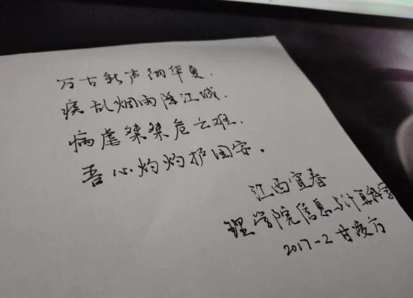 万古新声翔华夏，
疾乱烟雨降江城，
病虐桀桀危云难，
吾心灼灼护国安。
江西宜春
理学院信息与计算科学
2017-2 甘凌方